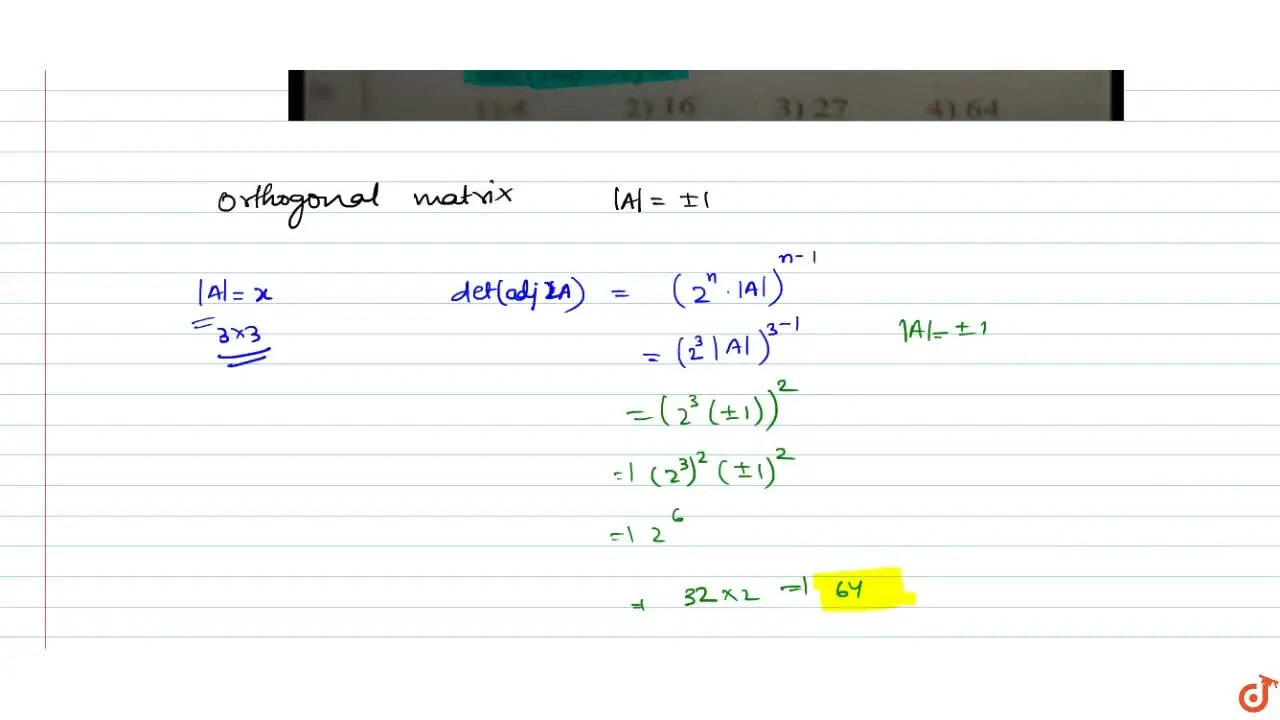 1) 4 2) 16 3) 27 4) 64
Orthogonal matrix |A| = ±1
|A| = x det(adj 2A) = (2ⁿ · |A|)ⁿ⁻¹
3×3 = (2³ |A|)³⁻¹ |A| = ±1
= (2³ (±1))²
=1 (2³)² (±1)²
=1 2⁶
= 32 × 2 =1 64